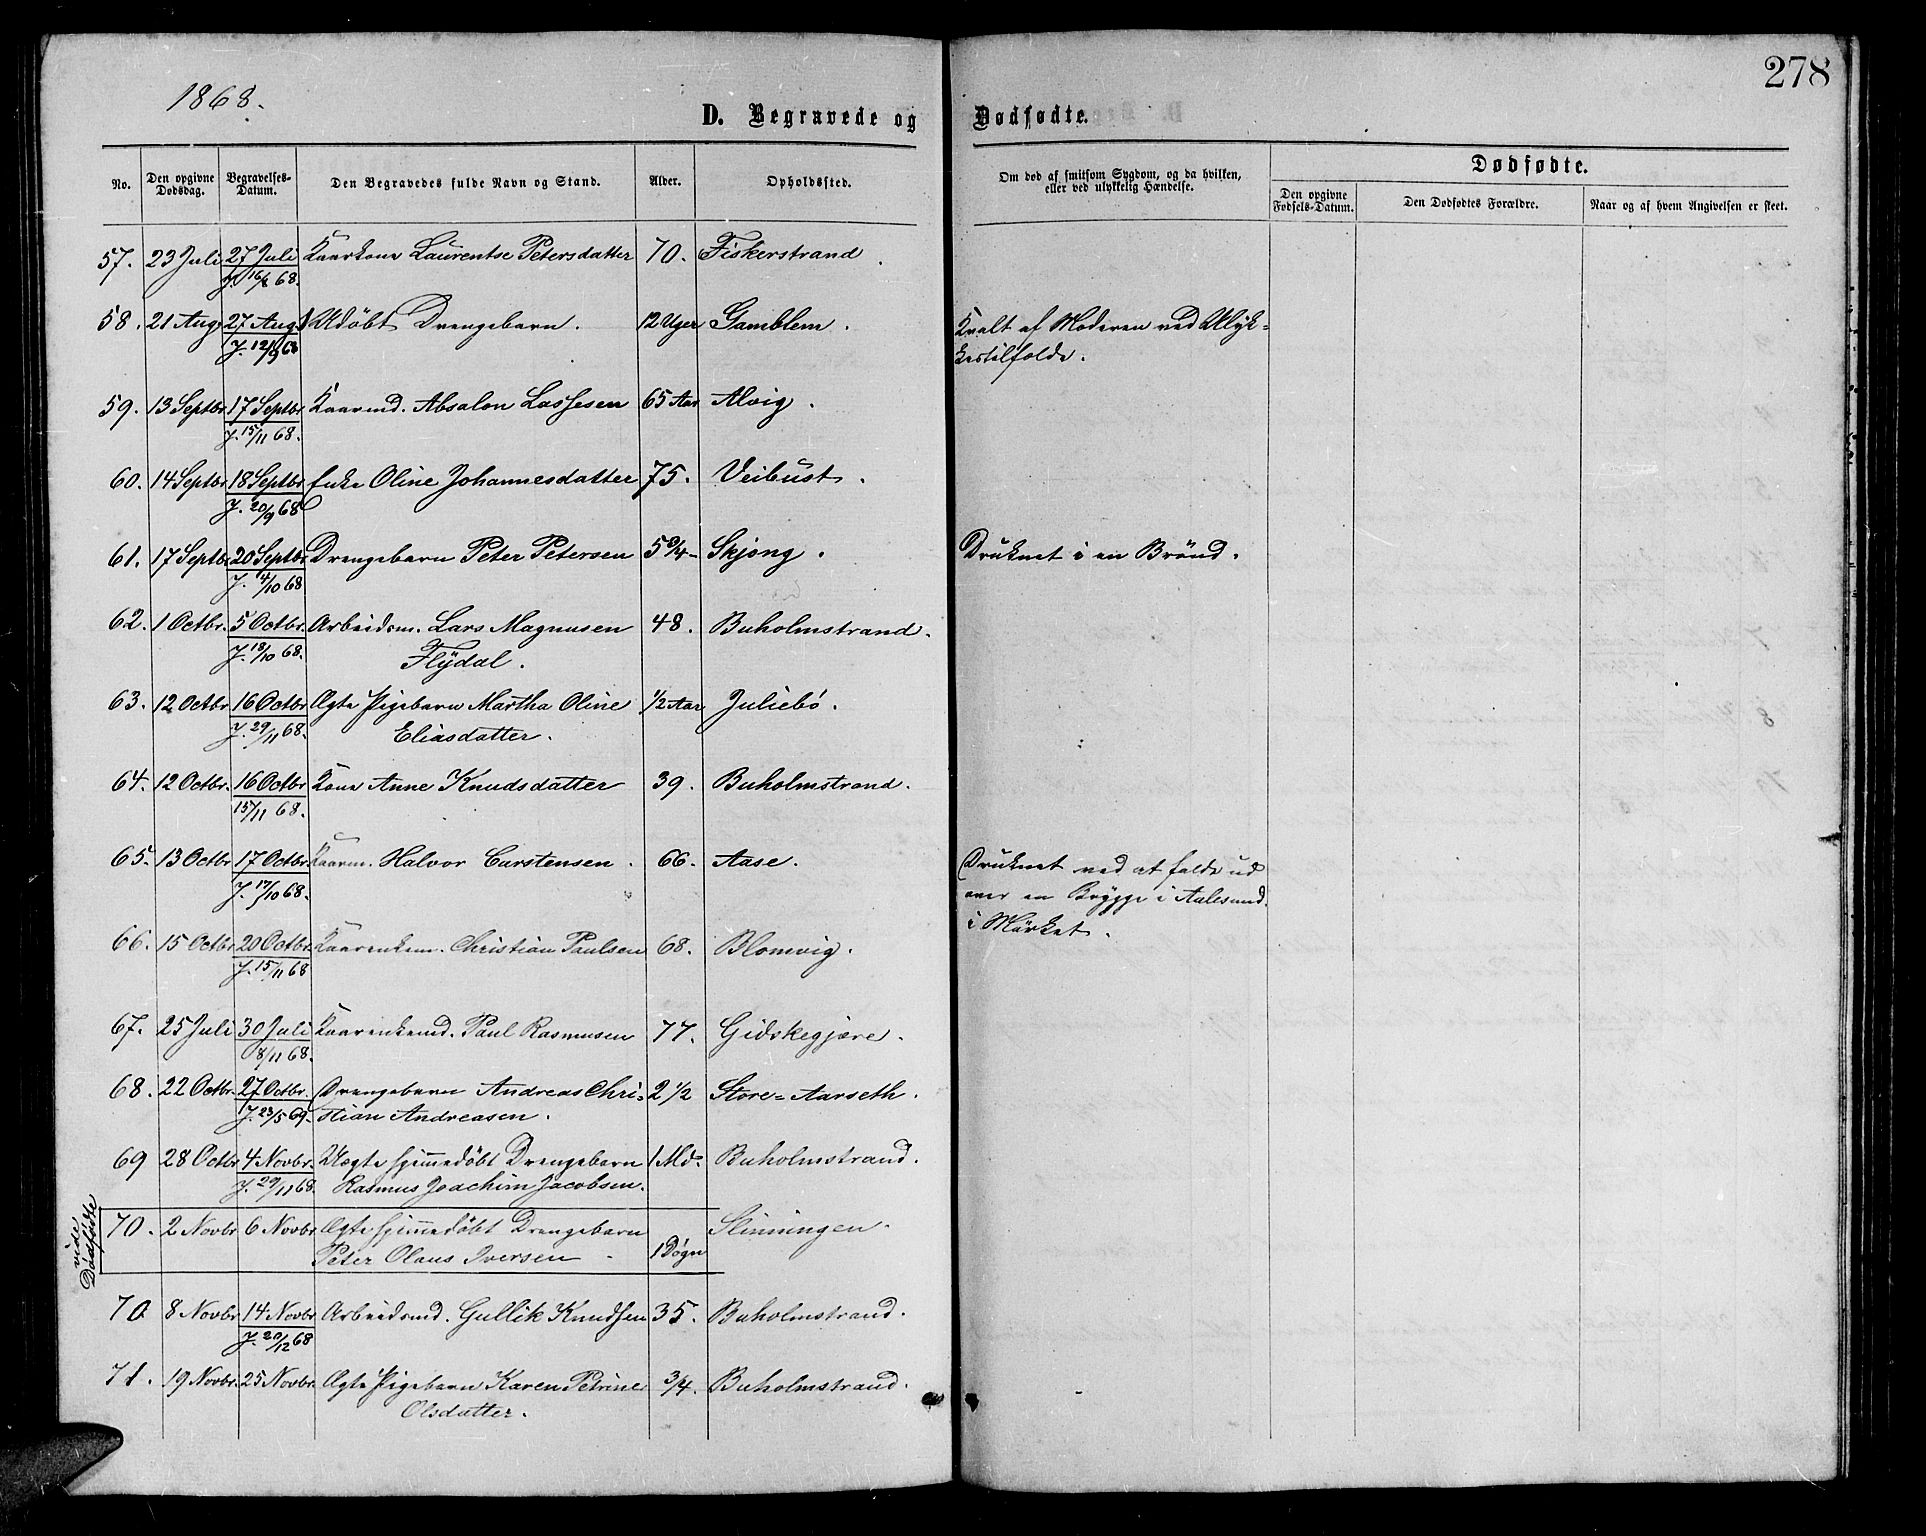 1868.
278
D. Begravede og Dødfødte.
No. Den opgivne Dødsdag. Begravelses-Datum. Den Begravedes fulde Navn og Stand. Alder. Opholdssted. Om død af smitsom Sygdom, og da hvilken, eller ved ulykkelig Hændelse. Dødfødte.
Den opgivne Fødsels-Datum. Den Dødfødtes Forældre. Naar og af hvem Angivelsen er skeet.
57. 23 Juli 27 Juli Kaarkone Laurentse Petersdatter 70. Fiskerstrand.
J. 16/8 68.
58. 21 Aug. 27 Aug. Udöbt Drengebarn. 12 Uger Gamblem. Kvalt af Moderen ved Ulyk-
J. 12/9 68 kestilfælde.
59. 13 Septbr 17 Septbr Kaarmd. Absalon Lassesen 65 Aar Alvig.
J. 15/11 68.
60. 14 Septbr 18 Septbr Enke Oline Johannesdatter 75. Veibust.
J. 20/9 68
61. 17 Septbr 20 Septbr Drengebarn Peter Petersen 5 3/4 - Skjong. Druknet i en Brönd.
J. 4/10 68
62. 1 Octbr. 5 Octbr. Arbeidsm. Lars Magnusen 48. Buholmstrand.
J. 18/10 68. Flÿdal.
63. 12 Octbr 16 Octbr Ægte Pigebarn Martha Oline 1/2 Aar Juliebö.
J. 29/11 68. Eliasdatter.
64. 12 Octbr. 16 Octbr Kone Anne Knudsdatter 39. Buholmstrand.
15/11 68.
65. 13 Octbr 17 Octbr. Kaarm. Halvor Carstensen. 66. Aase. Druknet ved at falde ud
J. 17/10 68. over en Brygge i Aalesund
i Mörket.
66. 15 Octbr 20 Octbr. Kaarenkem. Christian Paulsen 68. Blomvig.
J. 15/11 68
67. 25 Juli 30 Juli Kaarenkemd. Paul Rasmusen 77. Gidskegjære.
8/11 68.
68. 22 Octbr. 27 Octbr. Drengebarn Andreas Chri- 2 1/2 Store-Aarseth.
J. 23/5 69. stian Andreasen.
69 28 Octbr 4 Novbr. Uægte hjemmedöbt Drengebarn 1 Md. Buholmstrand.
J. 29/11 68. Rasmus Joachim Jacobsen.
vide Dødfødte
70. 2 Novbr 6 Novbr Ægte hjemmedöbt Drengebarn Slinningen.
Peter Olaus Iversen 1 Døgn
70 8 Novbr 14 Novbr Arbeidsmd. Gullik Knudsen 35. Buholmstrand.
J. 20/12 68
71. 19 Novbr. 25 Novbr. Ægte Pigebarn Karen Petrine 3/4. Buholmstrand.
Olsdatter.